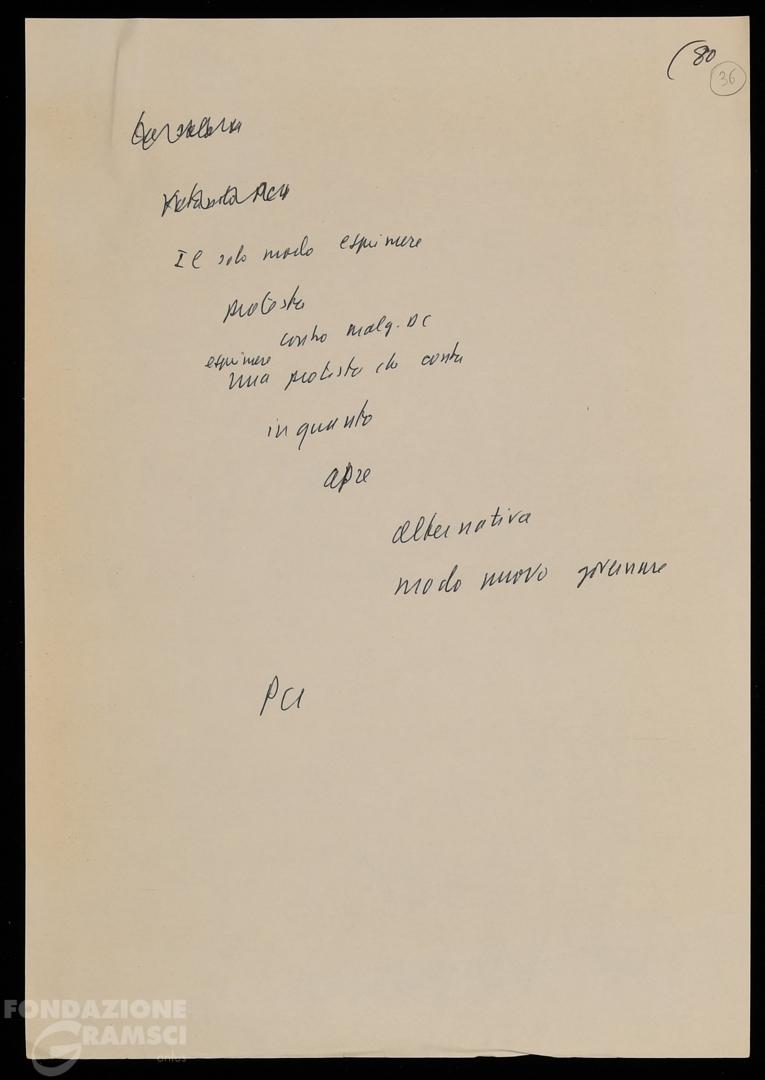 (80
36
Il solo modo esprimere
protesta
contro malg. DC
esprimere
una protesta che conta
in quanto
apre
alternativa
modo nuovo governare
PCI
FONDAZIONE
GRAMSCI
onlus